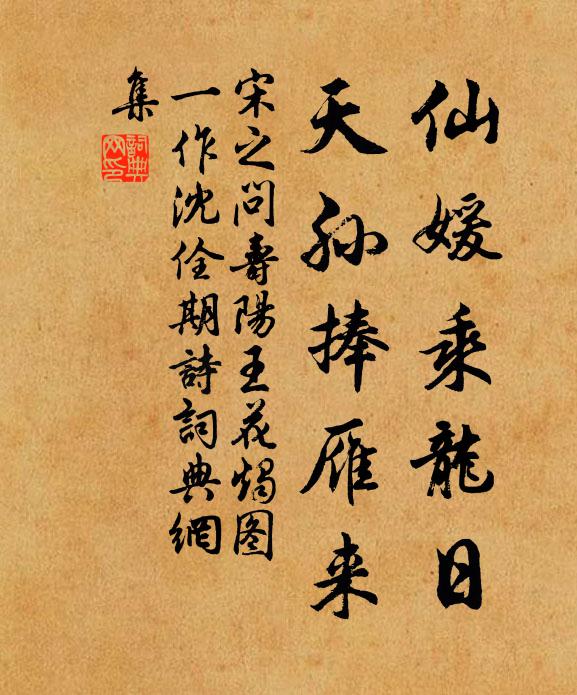 仙媛乘龍日
天孙捧雁来
宋之问壽陽王花燭图
一作沈佺期詩詞典網
集
詞典网印